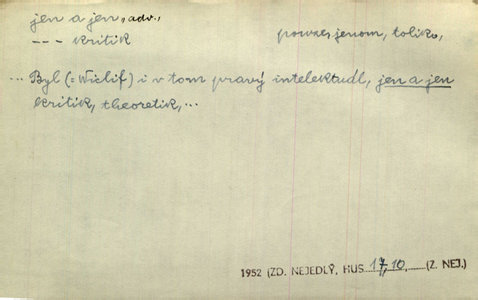 jen a jen, adv.,
--- kritik pouze, jenom, toliko,
... Byl (= Wiclif) i v tom pravý intelektuál, jen a jen
kritik, theoretik, ...
1952 (ZD. NEJEDLÝ, HUS 17, 10, (Z. NEJ.)